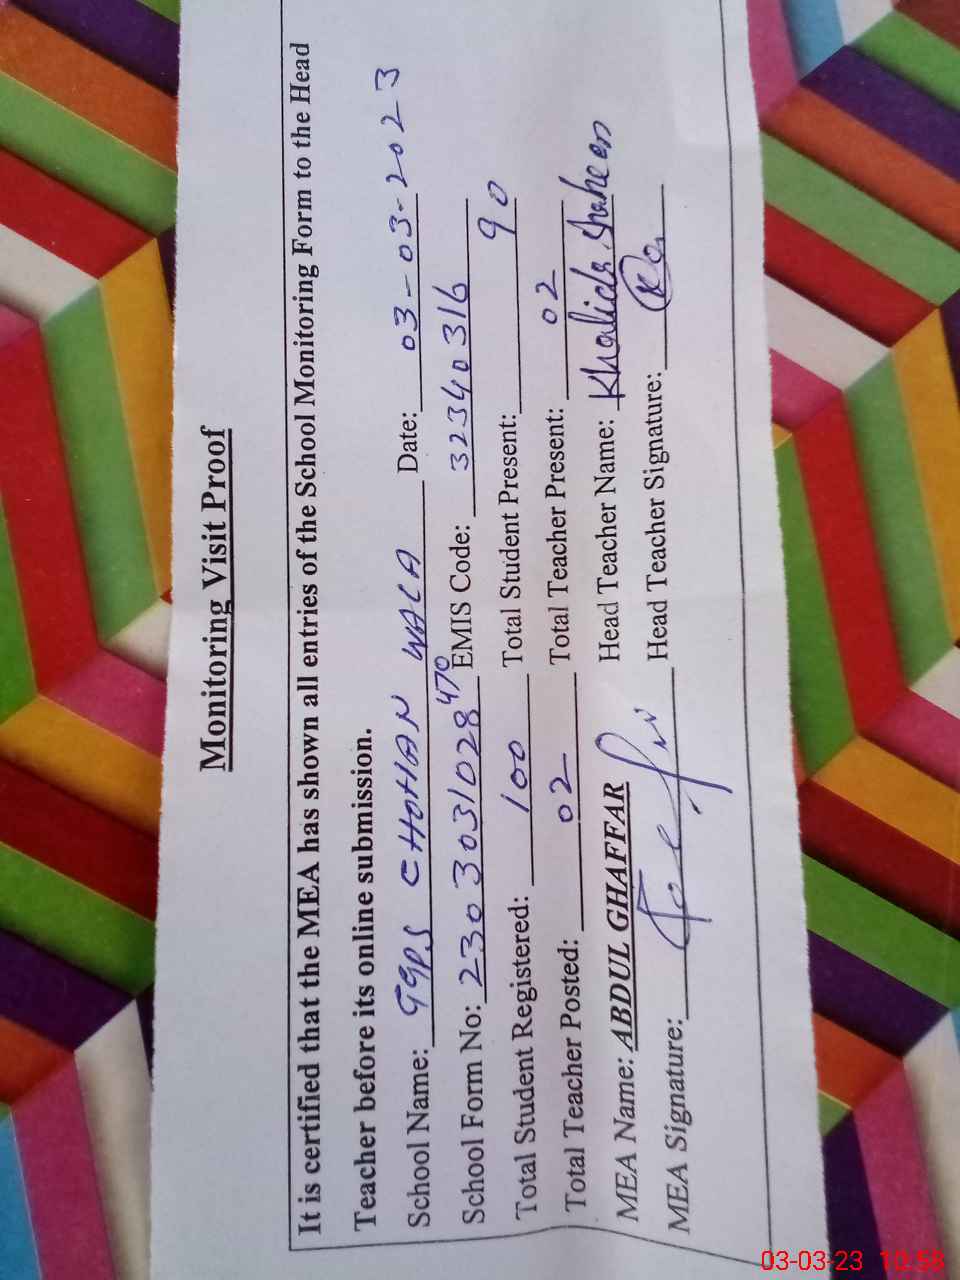 Monitoring Visit Proof
It is certified that the MEA has shown all entries of the School Monitoring Form to the Head
Teacher before its online submission.
School Name: GGPS CHOHAN WALA Date: 03-03-2023
School Form No: 2303031028470 EMIS Code: 32340316
Total Student Registered: 100 Total Student Present: 90
Total Teacher Posted: 02 Total Teacher Present: 02
MEA Name: ABDUL GHAFFAR Head Teacher Name: Khalida Shaheen
MEA Signature: Head Teacher Signature:
03-03-23 10:58